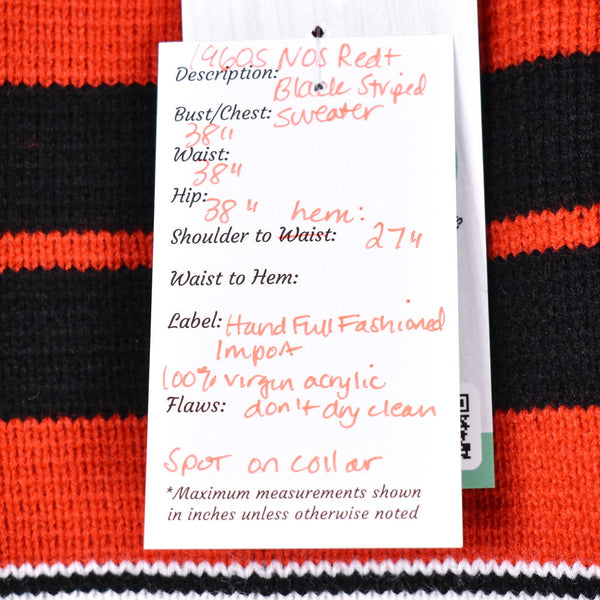 1960s NOS Red +
Description: Black Striped
Bust/Chest: Sweater
38"
Waist:
38"
Hip:
38" hem:
Shoulder to Waist: 27"
Waist to Hem:
Label: Hand Full Fashioned
Import
100% virgin acrylic
Flaws: don't dry clean
Spot on collar
*Maximum measurements shown
in inches unless otherwise noted